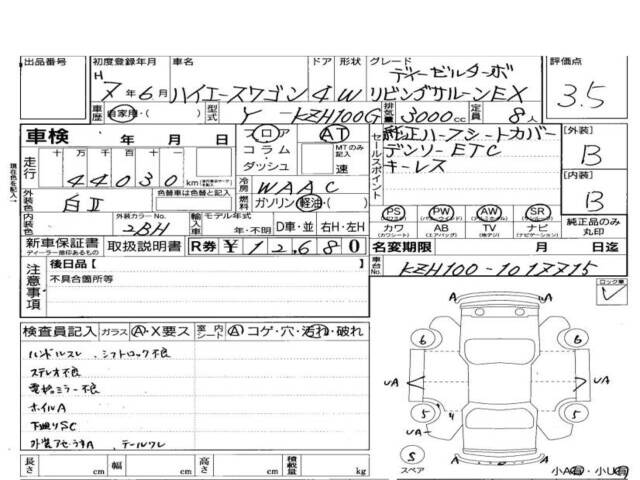 出品番号
初度登録年月 車名 ドア 形状 グレード 評価点
H 7年6月 ハイエースワゴン 4 W ディーゼルターボ リビングサルーンEX 3.5
車歴 自家用・( ) 型式 Y-KZH100G 排気量 3000cc 定員 8人
車検 年 月 日
フロア コラム ダッシュ
AT
MTのみ記入 速
セールスポイント
純正ハーフシートカバー
デンソーETC
キーレス
[外装] B
[内装] B
走行 十 万 千 百 十 一
44030 km
現在色を記入
外装色 白II 色替車は色替と記入
冷房 WAAC
燃料 ガソリン・軽油・( )
内装色 外装カラーNo. 2BH
輸入車 モデル年式 年・不明 D車・並 右H・左H
PS PW AW SR
カワ AB TV ナビ
純正品のみ丸印
新車保証書 取扱説明書 R券 ¥12,680
ディーラー捺印あるもの
名変期限 月 日迄
注意事項 後日品[ ]
不具合箇所等
車台No. KZH100-1017715
ロック車
検査員記入 ガラス A・X要ス 室内シート A コゲ・穴・汚れ・破れ
ハンドルスレ、シフトロック不良
ステレオ不良
電格ミラー不良
ホイルA
下廻りSC
外装アセ・うすA、テールワレ
A A
6 6
UA UA
5 4 5
UA
S スペア
A A
小A有・小U有
長さ cm 幅 cm 高さ cm 積載量 kg